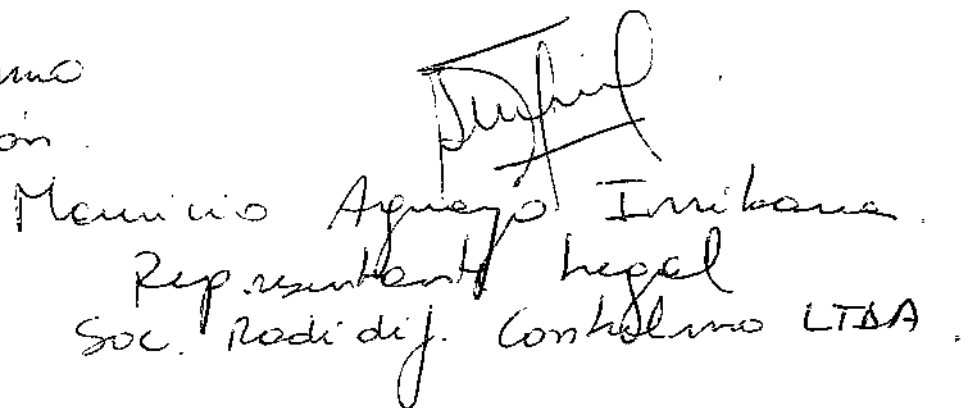 ón.
Mauricio Aguayo Irribarra.
Representante Legal
Soc. Radidif. LTDA.